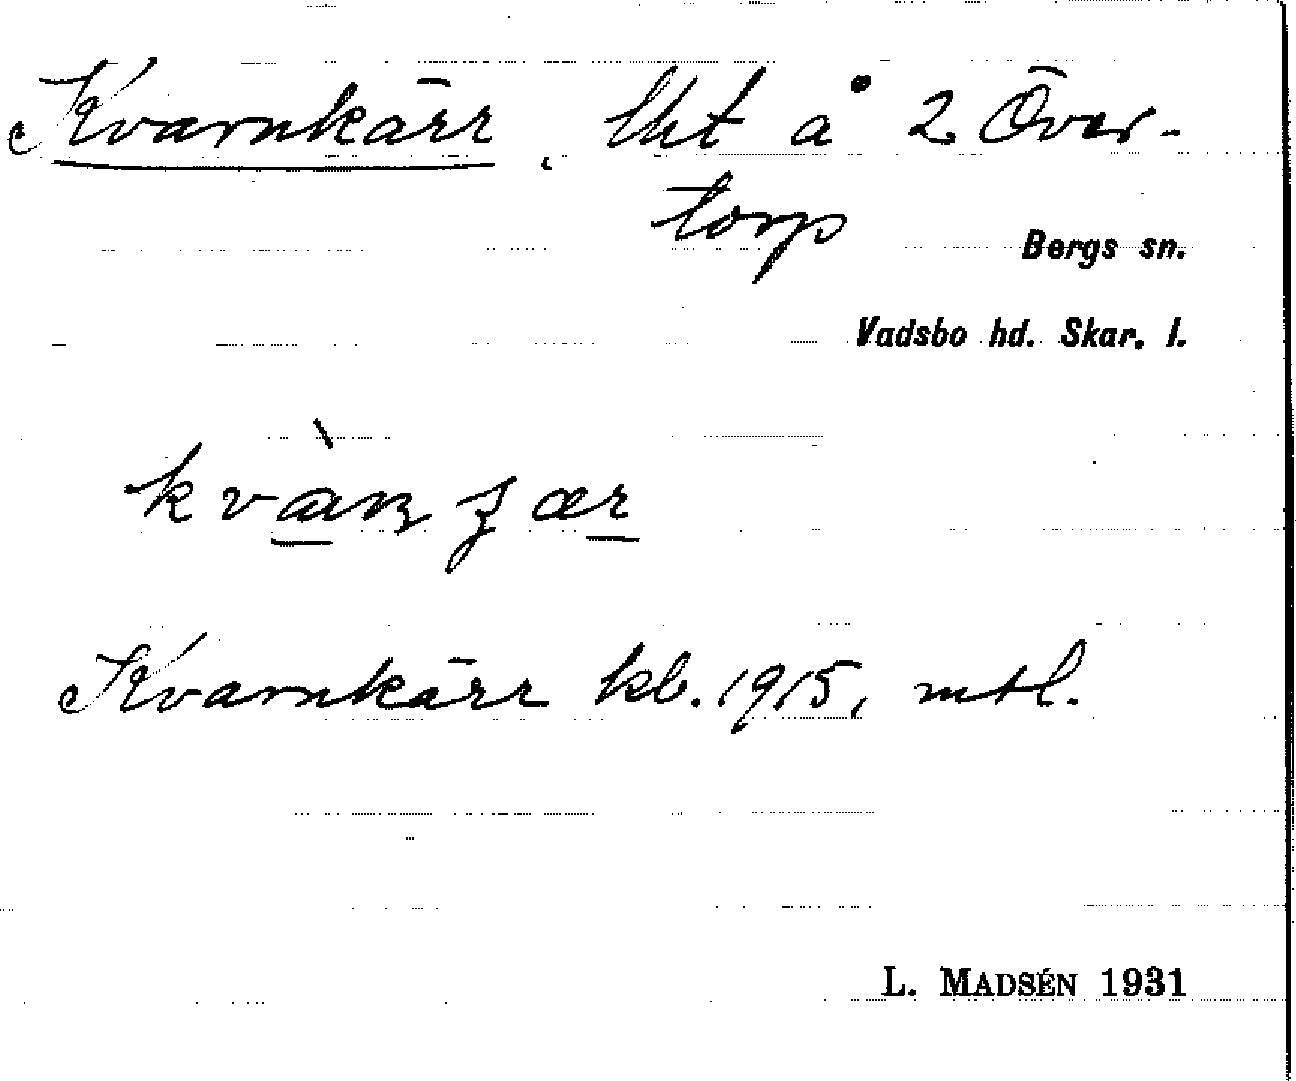 Kvarnkärr, lht å 2 Över-
torp
Bergs sn.
Vadsbo hd. Skar. l.
Kvarnkärr kb. 1915, mtl.
L. MADSÉN 1931